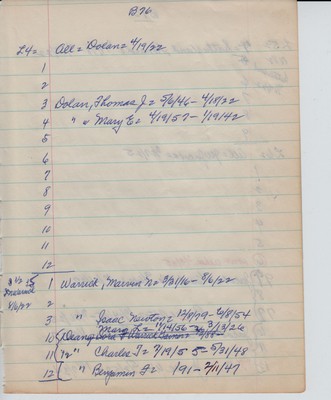 B76
L4= All = Dolan = 4/19/22
1
2
3 Dolan, Thomas J = 5/6/46 - 4/18/22
4 " " Mary E = 4/19/57 - 1/19/42
5
6
7
8
9
10
11
12
1 Warrick, Marvin N = 3/21/16 - 5/6/22
2
3 " Isaac Newton = 12/8/79 - 6/8/54
Mary = 11/14/56 - 3/13/26
10
11 12" Charles T = 7/19/55 - 5/31/48
12 " Benjamin F = /91 - 2/11/47